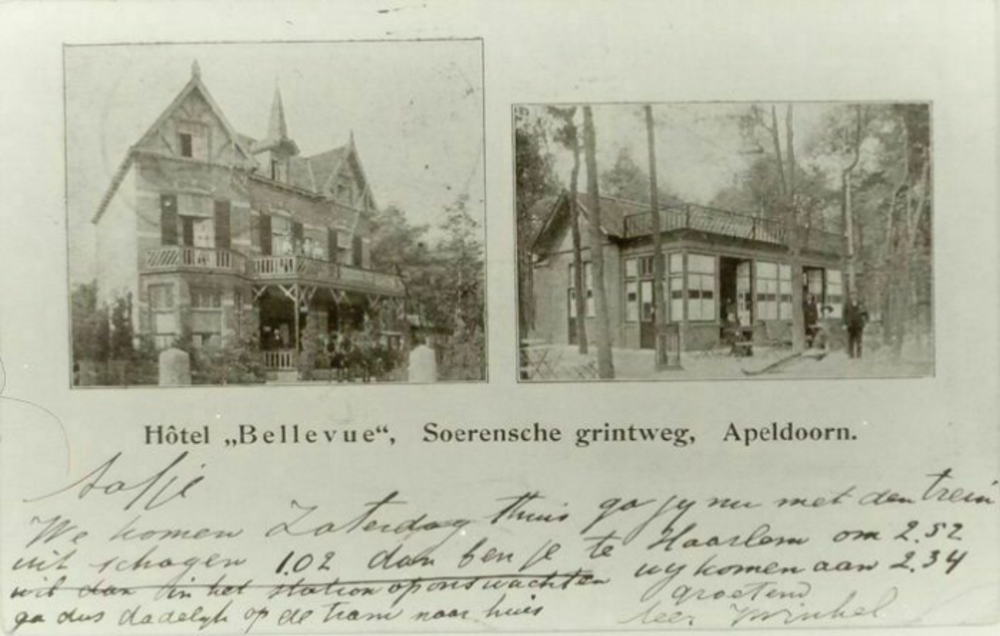 Hôtel „Bellevue“, Soerensche grintweg, Apeldoorn.
Aafje
We komen Zaterdag thuis ga jy nu met den trein
uit schagen 1.02 dan ben je te Haarlem om 2.52
wil dan in het station op ons wachten wy komen aan 2.34
ga dus dadelyk op de tram naar huis groetend
Winkel